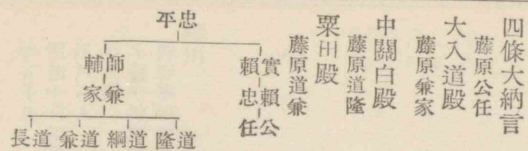 四條大納言
藤原公任
大入道殿
藤原兼家
中關白殿
藤原道隆
粟田殿
藤原道兼
忠平
實賴
賴忠
公任
師輔
兼家
道隆
道綱
道兼
道長